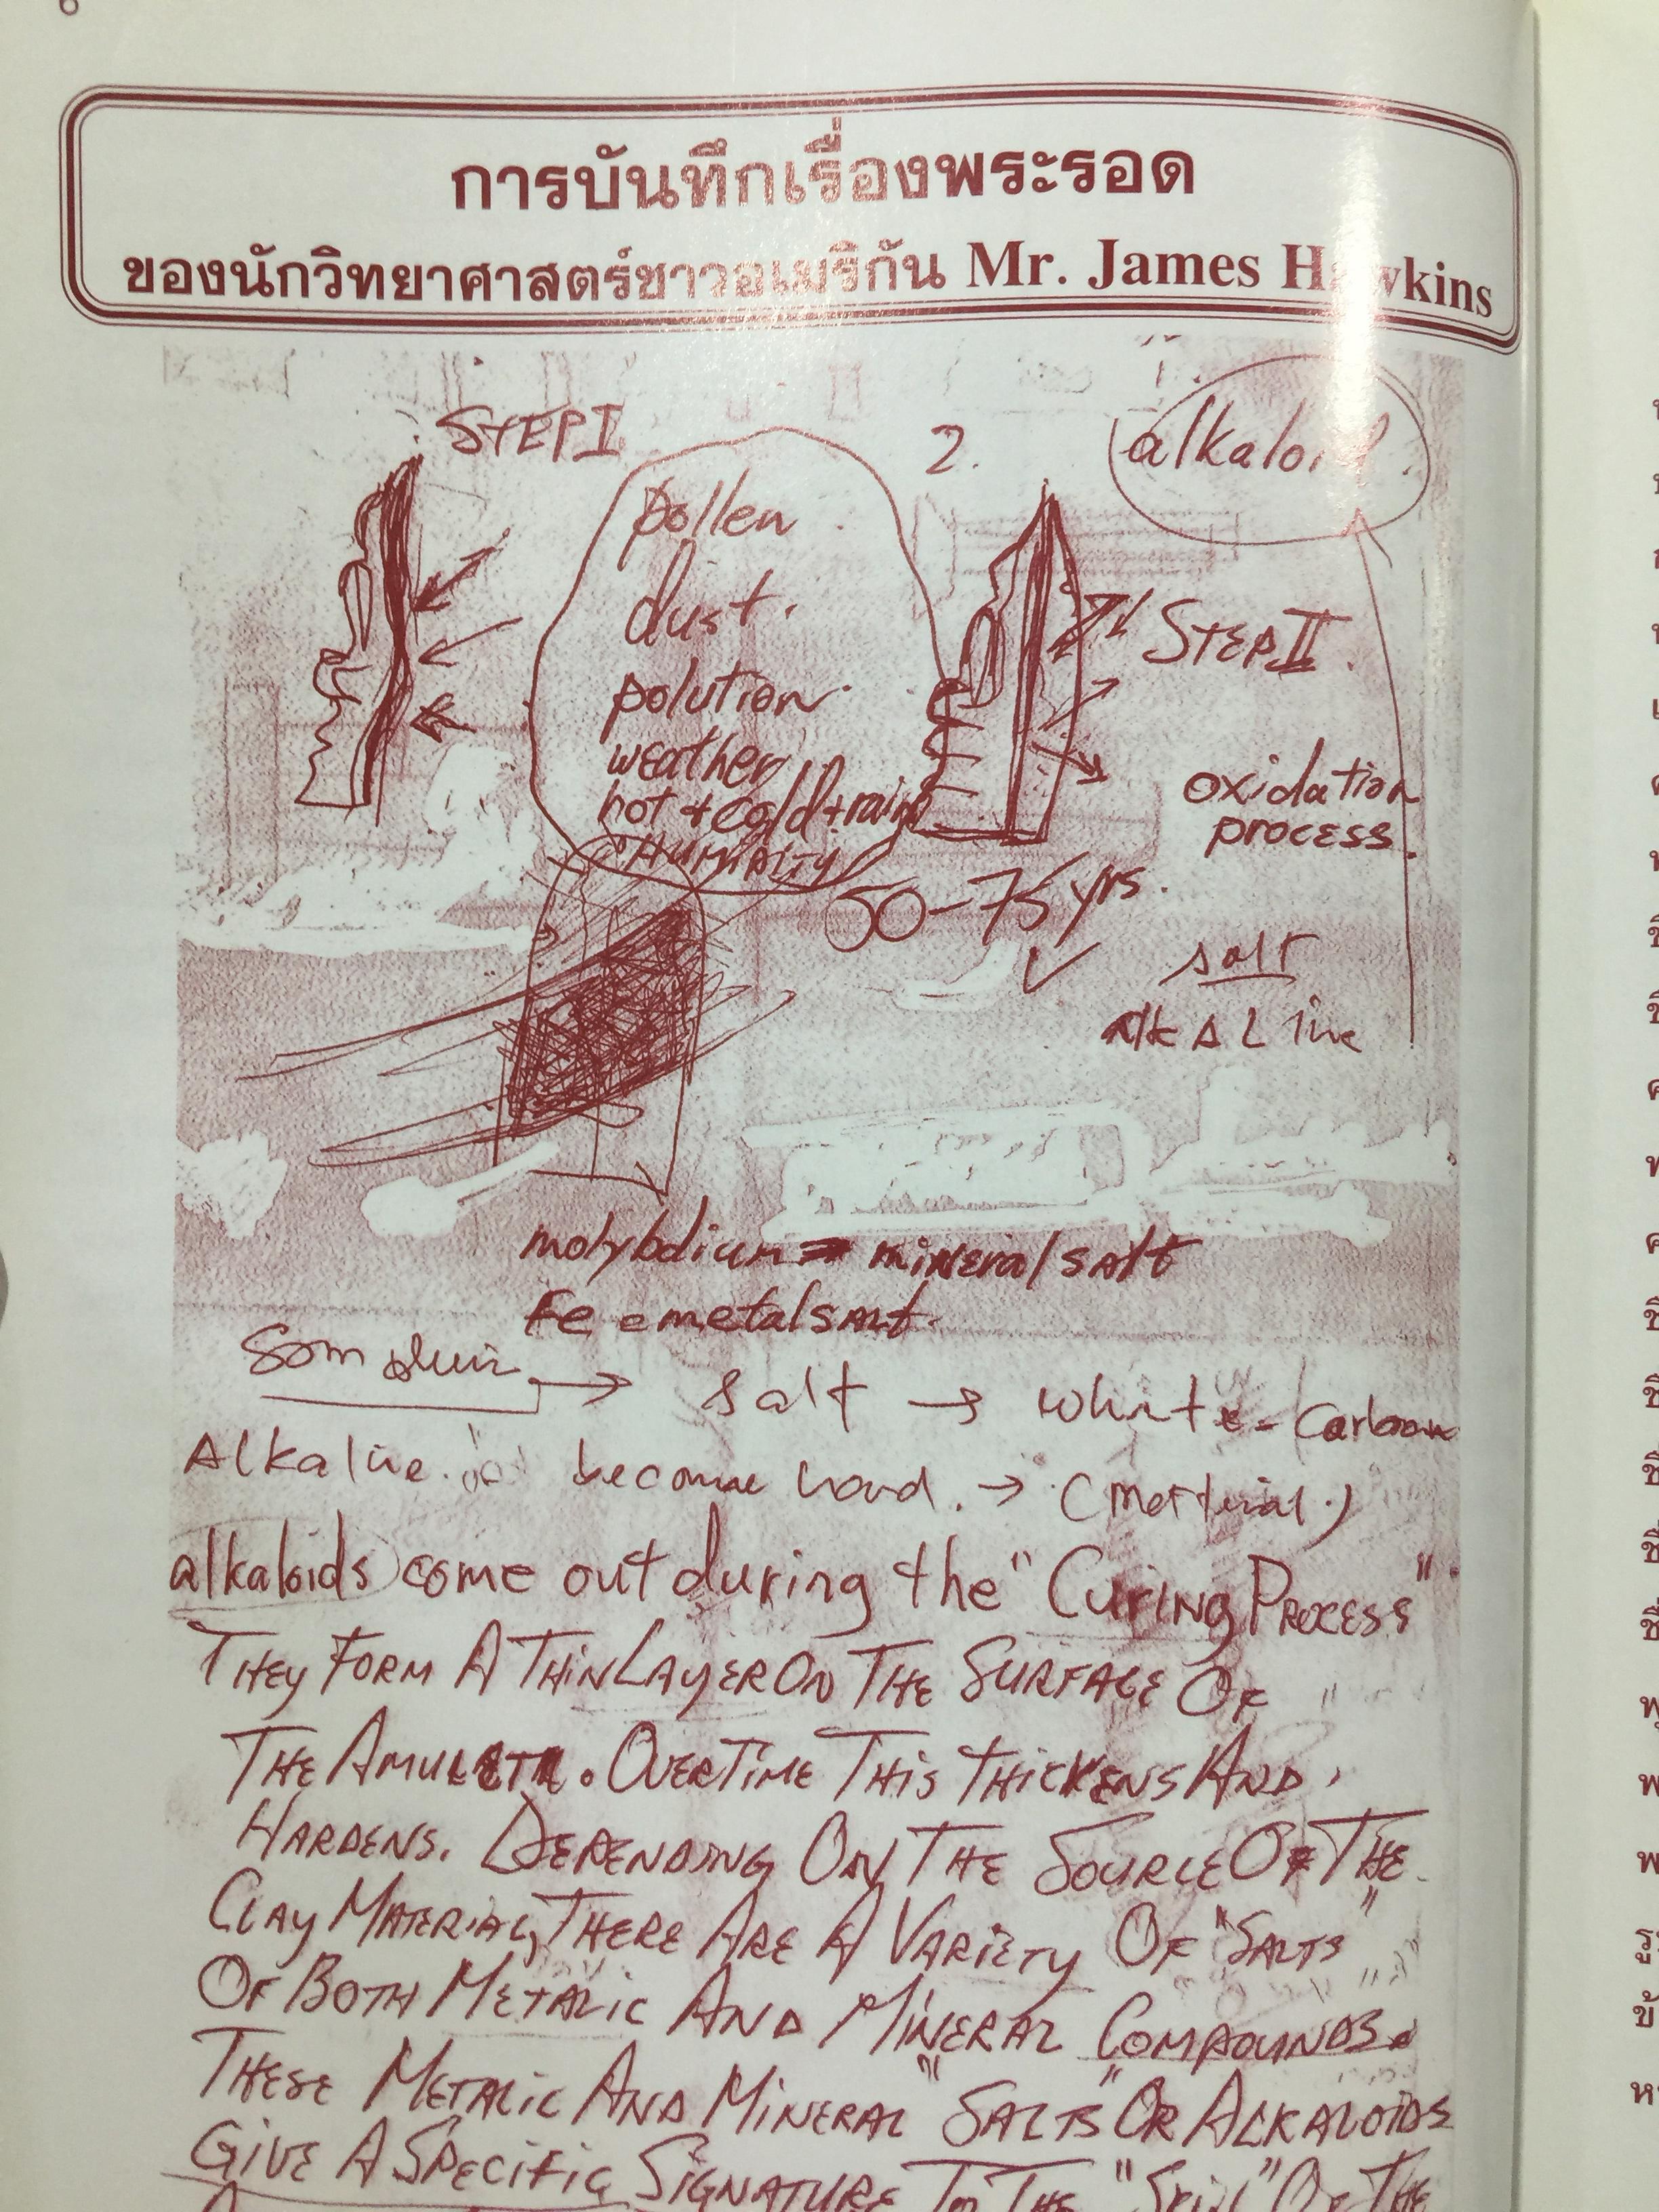 การบันทึกเรื่องพระรอด
ของนักวิทยาศาสตร์ชาวอเมริกัน Mr. James Hawkins
STEP I
2.
alkaloid
pollen
dust.
polution
weather
hot + cold + rain
HUMIDITY
STEP II.
oxidation
process.
50-75 yrs.
salt
alkALine
molybdium = mineral salt
Fe = metal salt.
Som → salt → white - carbon
Alkaline. become hard. → (material.)
alkaloids come out during the "Curing PROCESS".
THEY FORM A THIN LAYER ON THE SURFACE OF
THE AMULET. OVER TIME THIS THICKENS AND
HARDENS. DEPENDING ON THE SOURCE OF THE
CLAY MATERIAL, THERE ARE A VARIETY OF "SALTS"
OF BOTH METALIC AND MINERAL COMPOUNDS.
THESE METALIC AND MINERAL "SALTS" OR ALKALOIDS
GIVE A SPECIFIC SIGNATURE TO THE "SKIN" OF THE